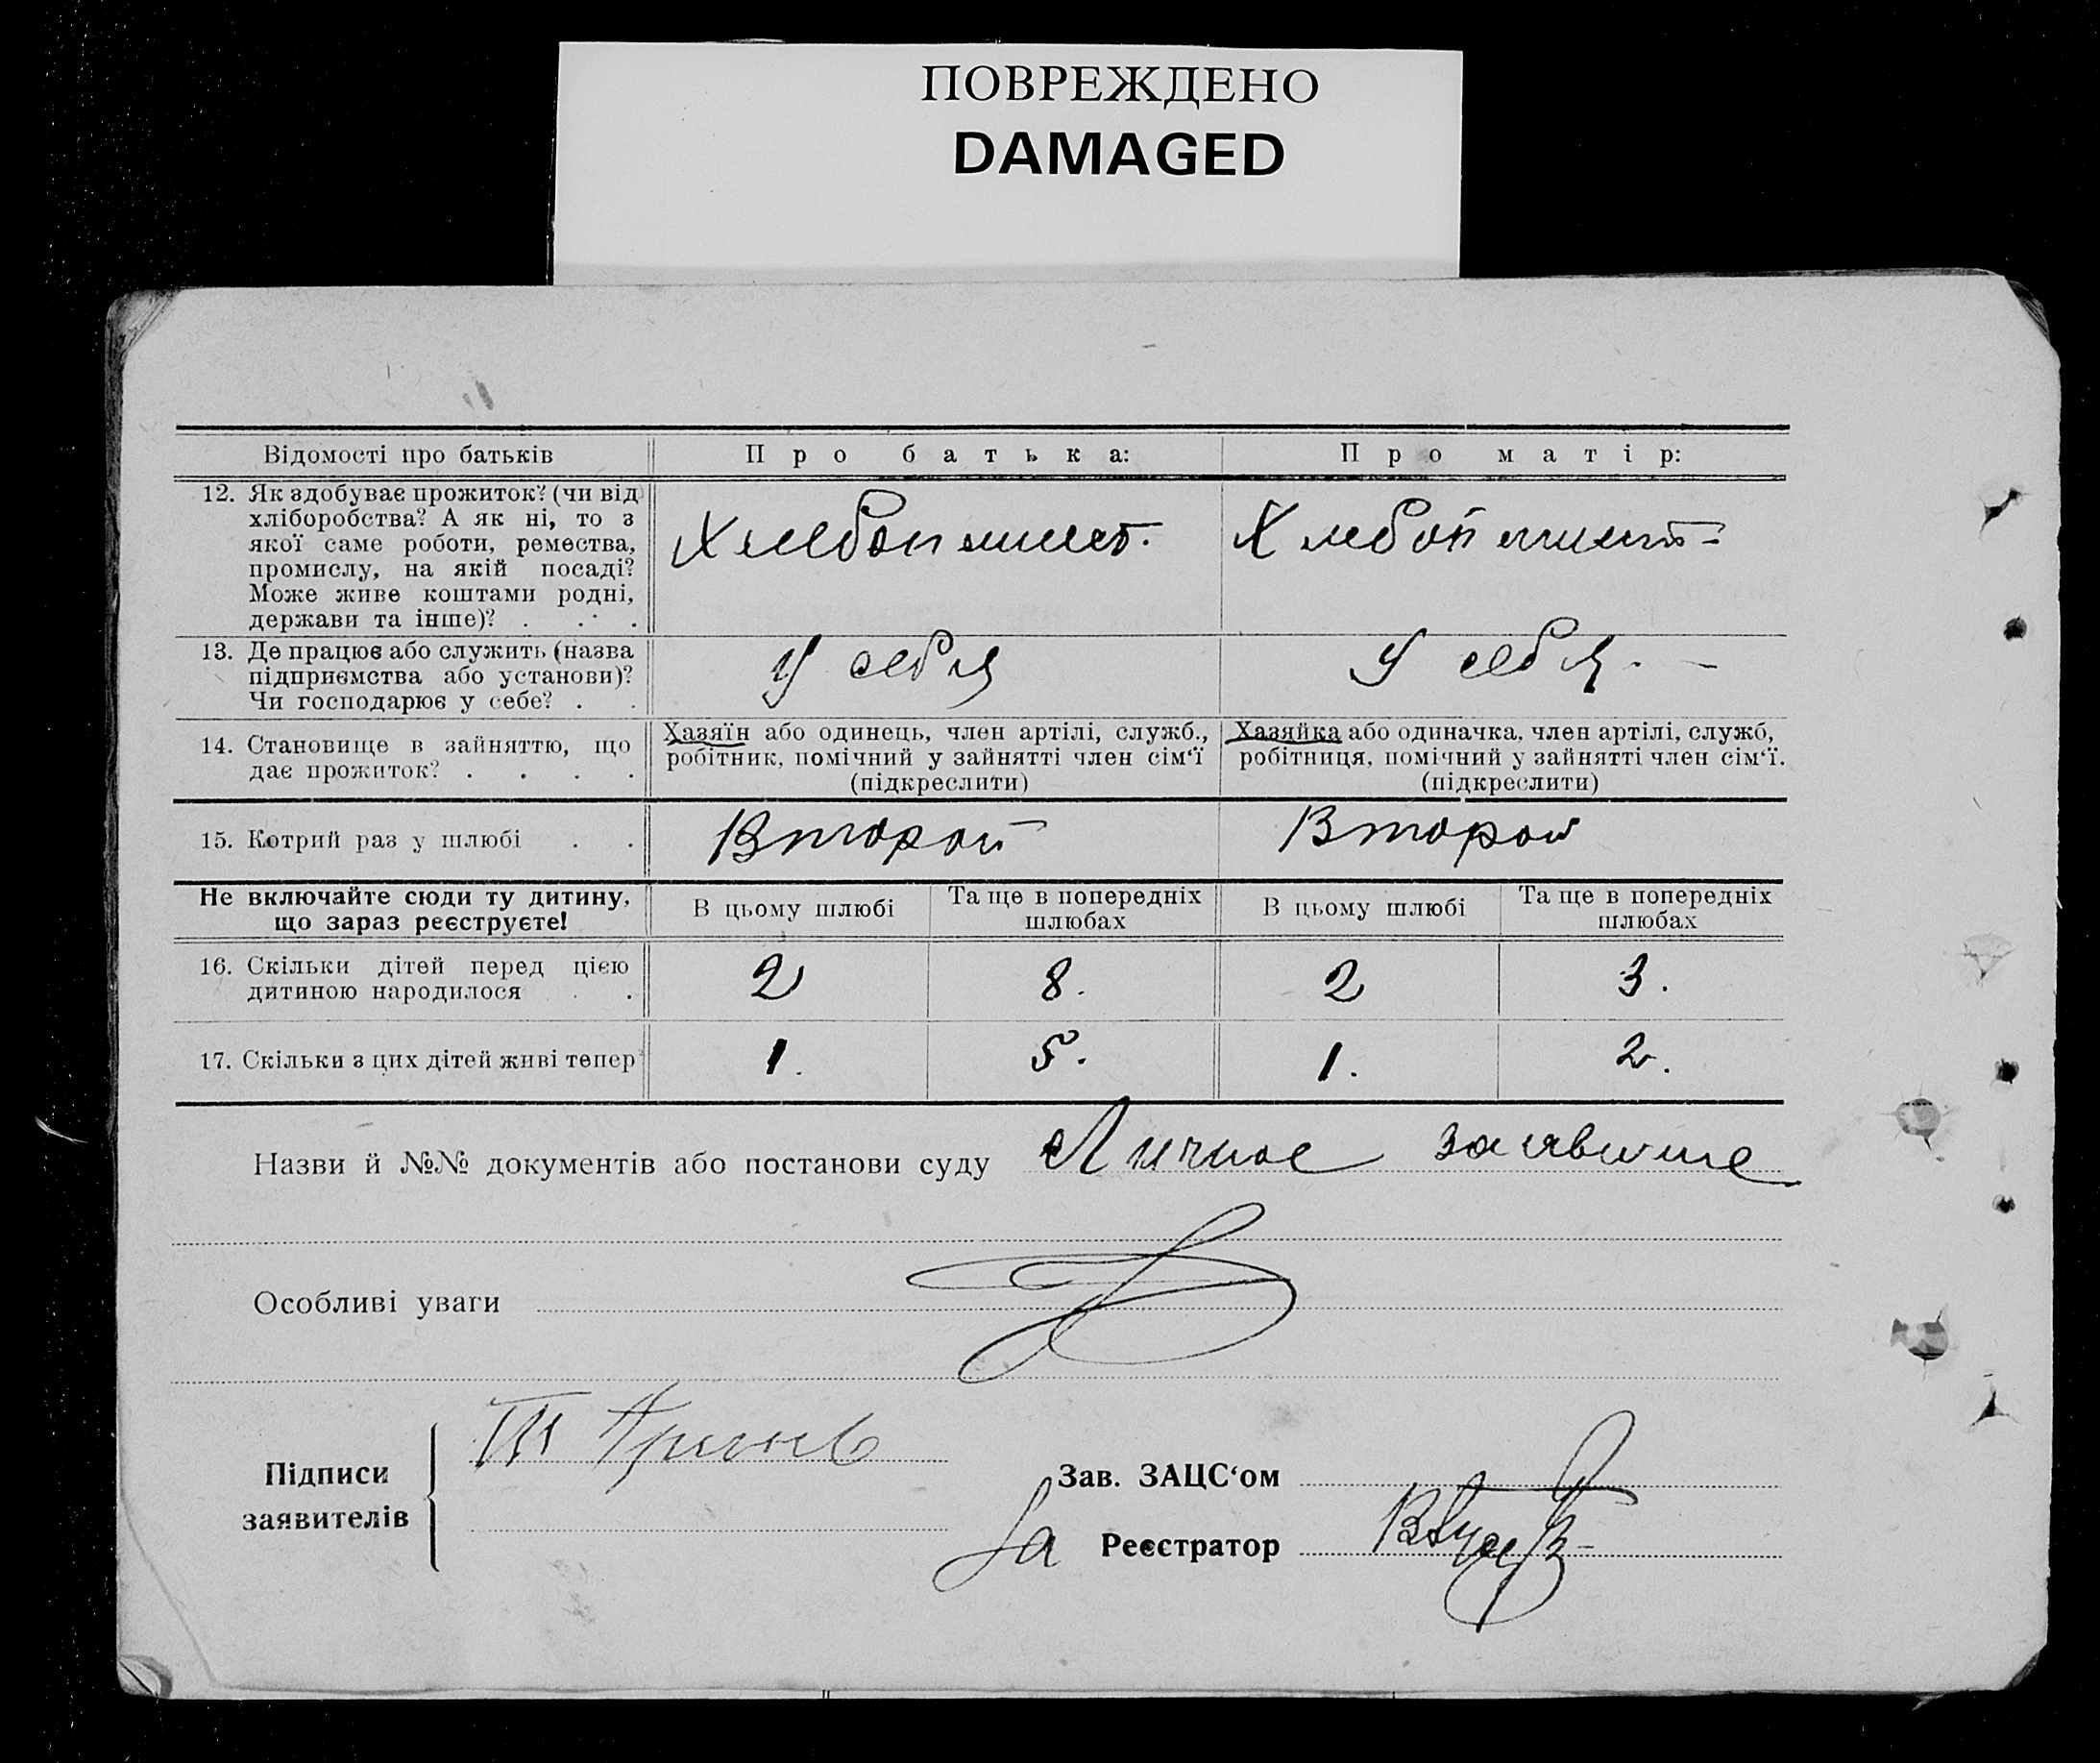 ПОВРЕЖДЕНО
DAMAGED
Відомості про батьків
Про батька:
Про матір:
12. Як здобуває прожиток? (чи від
хліборобства? А як ні, то з
якої саме роботи, ремества,
промислу, на якій посаді?
Може живе коштами родні,
держави та інше)? . . .
Хлебопашест.
Хлебопашест-
13. Де працює або служить (назва
підприємства або установи)?
Чи господарює у себе? . .
У себя
У себя. -
14. Становище в зайняттю, що
дає прожиток? . . . .
Хазяїн або одинець, член артілі, служб.,
робітник, помічний у зайнятті член сім‘ї
(підкреслити)
Хазяйка або одиначка, член артілі, служб,
робітниця, помічний у зайнятті член сім‘ї.
(підкреслити)
15. Котрий раз у шлюбі . .
Второй
Второй
Не включайте сюди ту дитину,
що зараз реєструєте!
В цьому шлюбі
Та ще в попередніх
шлюбах
В цьому шлюбі
Та ще в попередніх
шлюбах
16. Скільки дітей перед цією
дитиною народилося . .
2
8.
2
3.
17. Скільки з цих дітей живі тепер
1.
5.
1.
2.
Назви й №№ документів або постанови суду Личное заявление
Особливі уваги
Підписи
заявителів
Зав. ЗАЦС‘ом
За Реєстратор